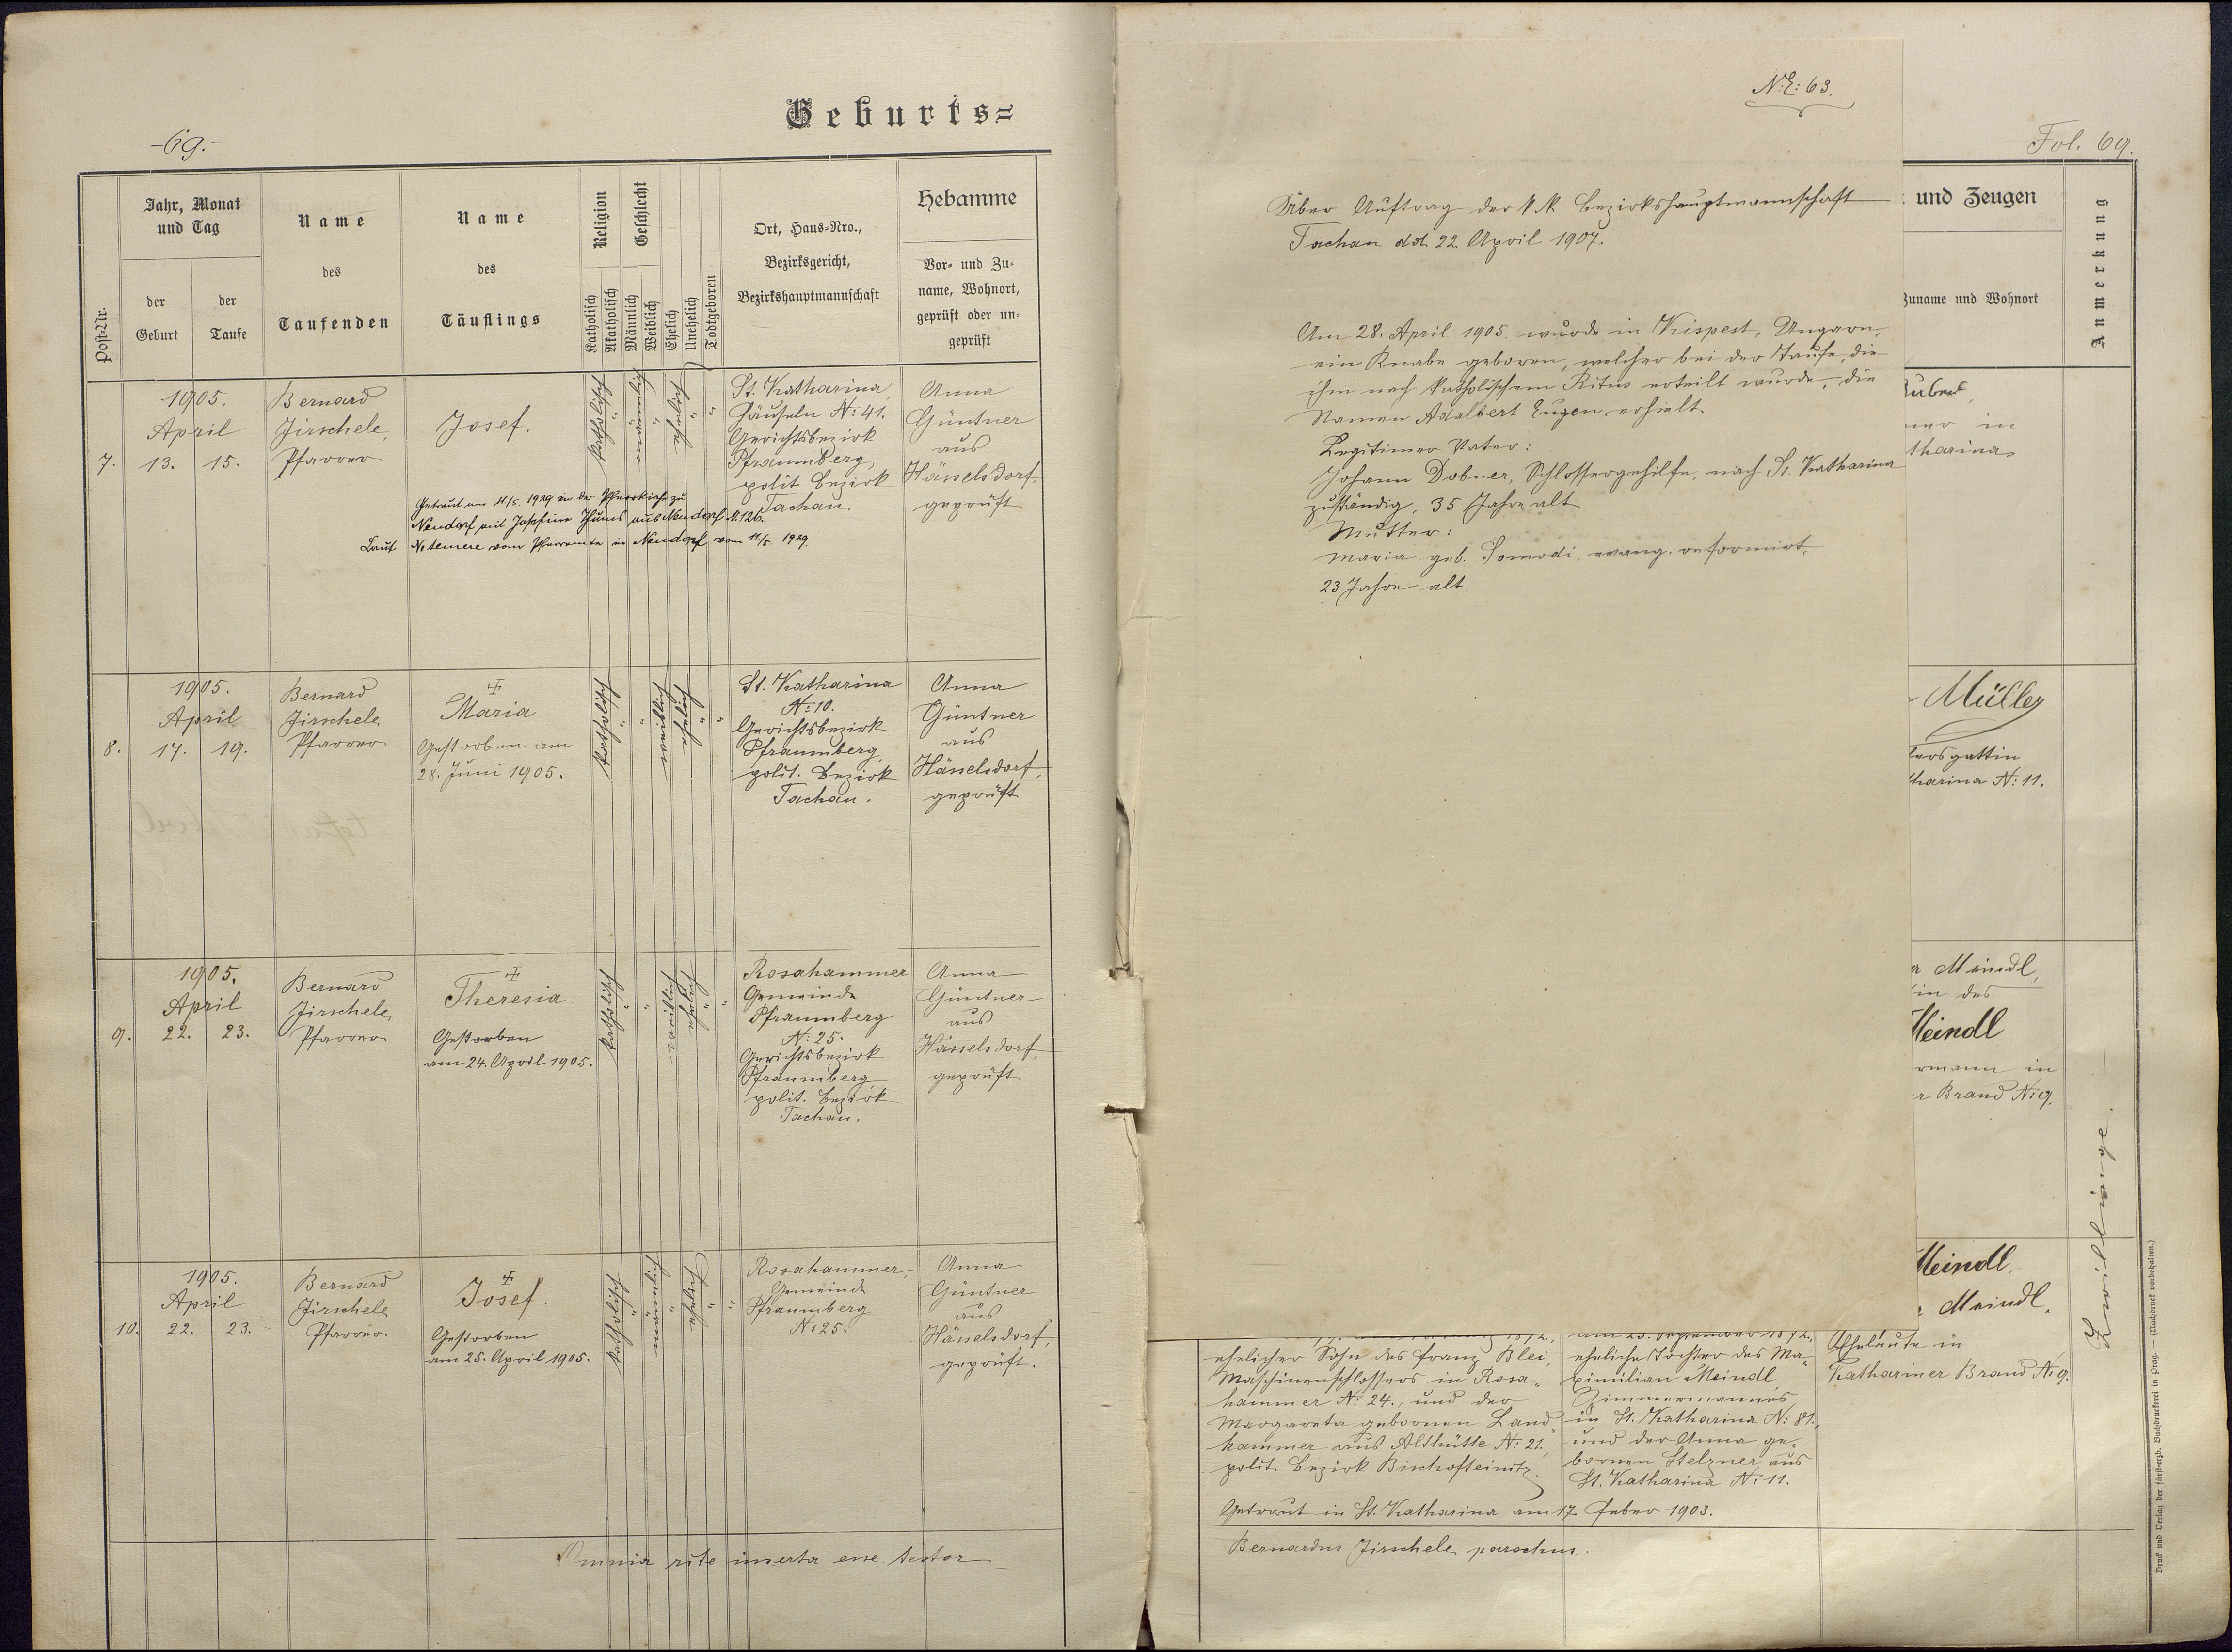 Geburts=
-69.-
Post-Nr.
Jahr, Monat
und Tag
der
Geburt
der
Taufe
Name
des
Taufenden
Name
des
Täuflings
Religion
Katholisch
Akatholisch
Geschlecht
Männlich
Weiblich
Ehelich
Unehelich
Todtgeboren
Ort, Haus-Nro.,
Bezirksgericht,
Bezirkshauptmannschaft
Hebamme
Vor- und Zu-
name, Wohnort,
geprüft oder un-
geprüft
7.
1905.
April
13. 15.
Bernard
Jirschele,
Pfarrer
Josef.
Getraut am 11/5. 1929 in der Pfarrkirche zu
Neudorf mit Josefine Thums aus Neudorf N. 126.
Laut Notemere vom Pfarramte in Neudorf vom 11/5. 1929.
katholisch
"
männlich
"
ehelich
"
"
St. Katharina
Häuseln N: 41.
Gerichtsbezirk
Pfraumberg,
polit Bezirk
Tachau.
Anna
Güntner
aus
Hässelsdorf,
geprüft
8.
1905.
April
17. 19.
Bernard
Jirschele
Pfarrer
Maria
Gestorben am
28. Juni 1905.
katholisch
"
"
weiblich
ehelich
"
"
St. Katharina
N: 10.
Gerichtsbezirk
Pfraumberg,
polit. Bezirk
Tachau.
Anna
Güntner
aus
Hässelsdorf,
geprüft
9.
1905.
April
22. 23.
Bernard
Jirschele,
Pfarrer
Theresia.
Gestorben
am 24. April 1905.
katholisch
"
"
weiblich
ehelich
"
"
Rosahammer
Gemeinde
Pfraumberg
N: 25.
Gerichtsbezirk
Pfraumberg
polit. Bezirk
Tachau.
Anna
Güntner
aus
Hässelsdorf,
geprüft
10.
1905.
April
22. 23.
Bernard
Jirschele
Pfarrer
Josef.
Gestorben
am 25. April 1905.
katholisch
"
männlich
"
ehelich
"
"
Rosahammer,
Gemeinde
Pfraumberg
N: 25.
Anna
Güntner
aus
Hässelsdorf,
geprüft.
Omnia rite inserta esse testor
N.E: 63.
Über Auftrag der k.k. Bezirkshauptmannschaft
Tachau dd. 22 April 1907.
Am 28. April 1905. wurde in Kispest, Ungarn,
ein Knabe geboren, welcher bei der Taufe, die
ihm nach katholischem Ritus erteilt wurde, die
Namen Adalbert Eugen erhielt.
Legitimer Vater:
Johann Dobner, Schlossergehilfe, nach St. Katharina
zuständig, 35 Jahre alt
Mutter:
Maria geb. Somodi, evang. reformirt,
23 Jahre alt.
Fol. 69.
und Zeugen
Zuname und Wohnort
Anmerkung
tharina
Müller
ersgattin
tharina N: 11.
Meindl,
in des
Meindl
rmann in
r Brand N: 9.
Meindl.
Meindl.
Eheleute in
Kathariner Brand N: 9.
Zwillinge.
ehelicher Sohn des Franz Blei,
Maschinenschlossers in Rosa-
hammer N: 24., und der
Margareta gebornen Land-
hammer aus Althütte N: 21.,
polit. Bezirk Bischofteinitz.
eheliche Tochter des Ma-
ximilian Meindl
Zimmermannes
in St. Katharina N: 81.,
und der Anna ge-
bornen Stelzner aus
St. Katharina N: 11.
Getraut in St. Katharina am 17. Feber 1903.
Bernardus Jirschele parochus.
Druck und Verlag der fürsterzb. Buchdruckerei in Prag. — (Nachdruck vorbehalten.)